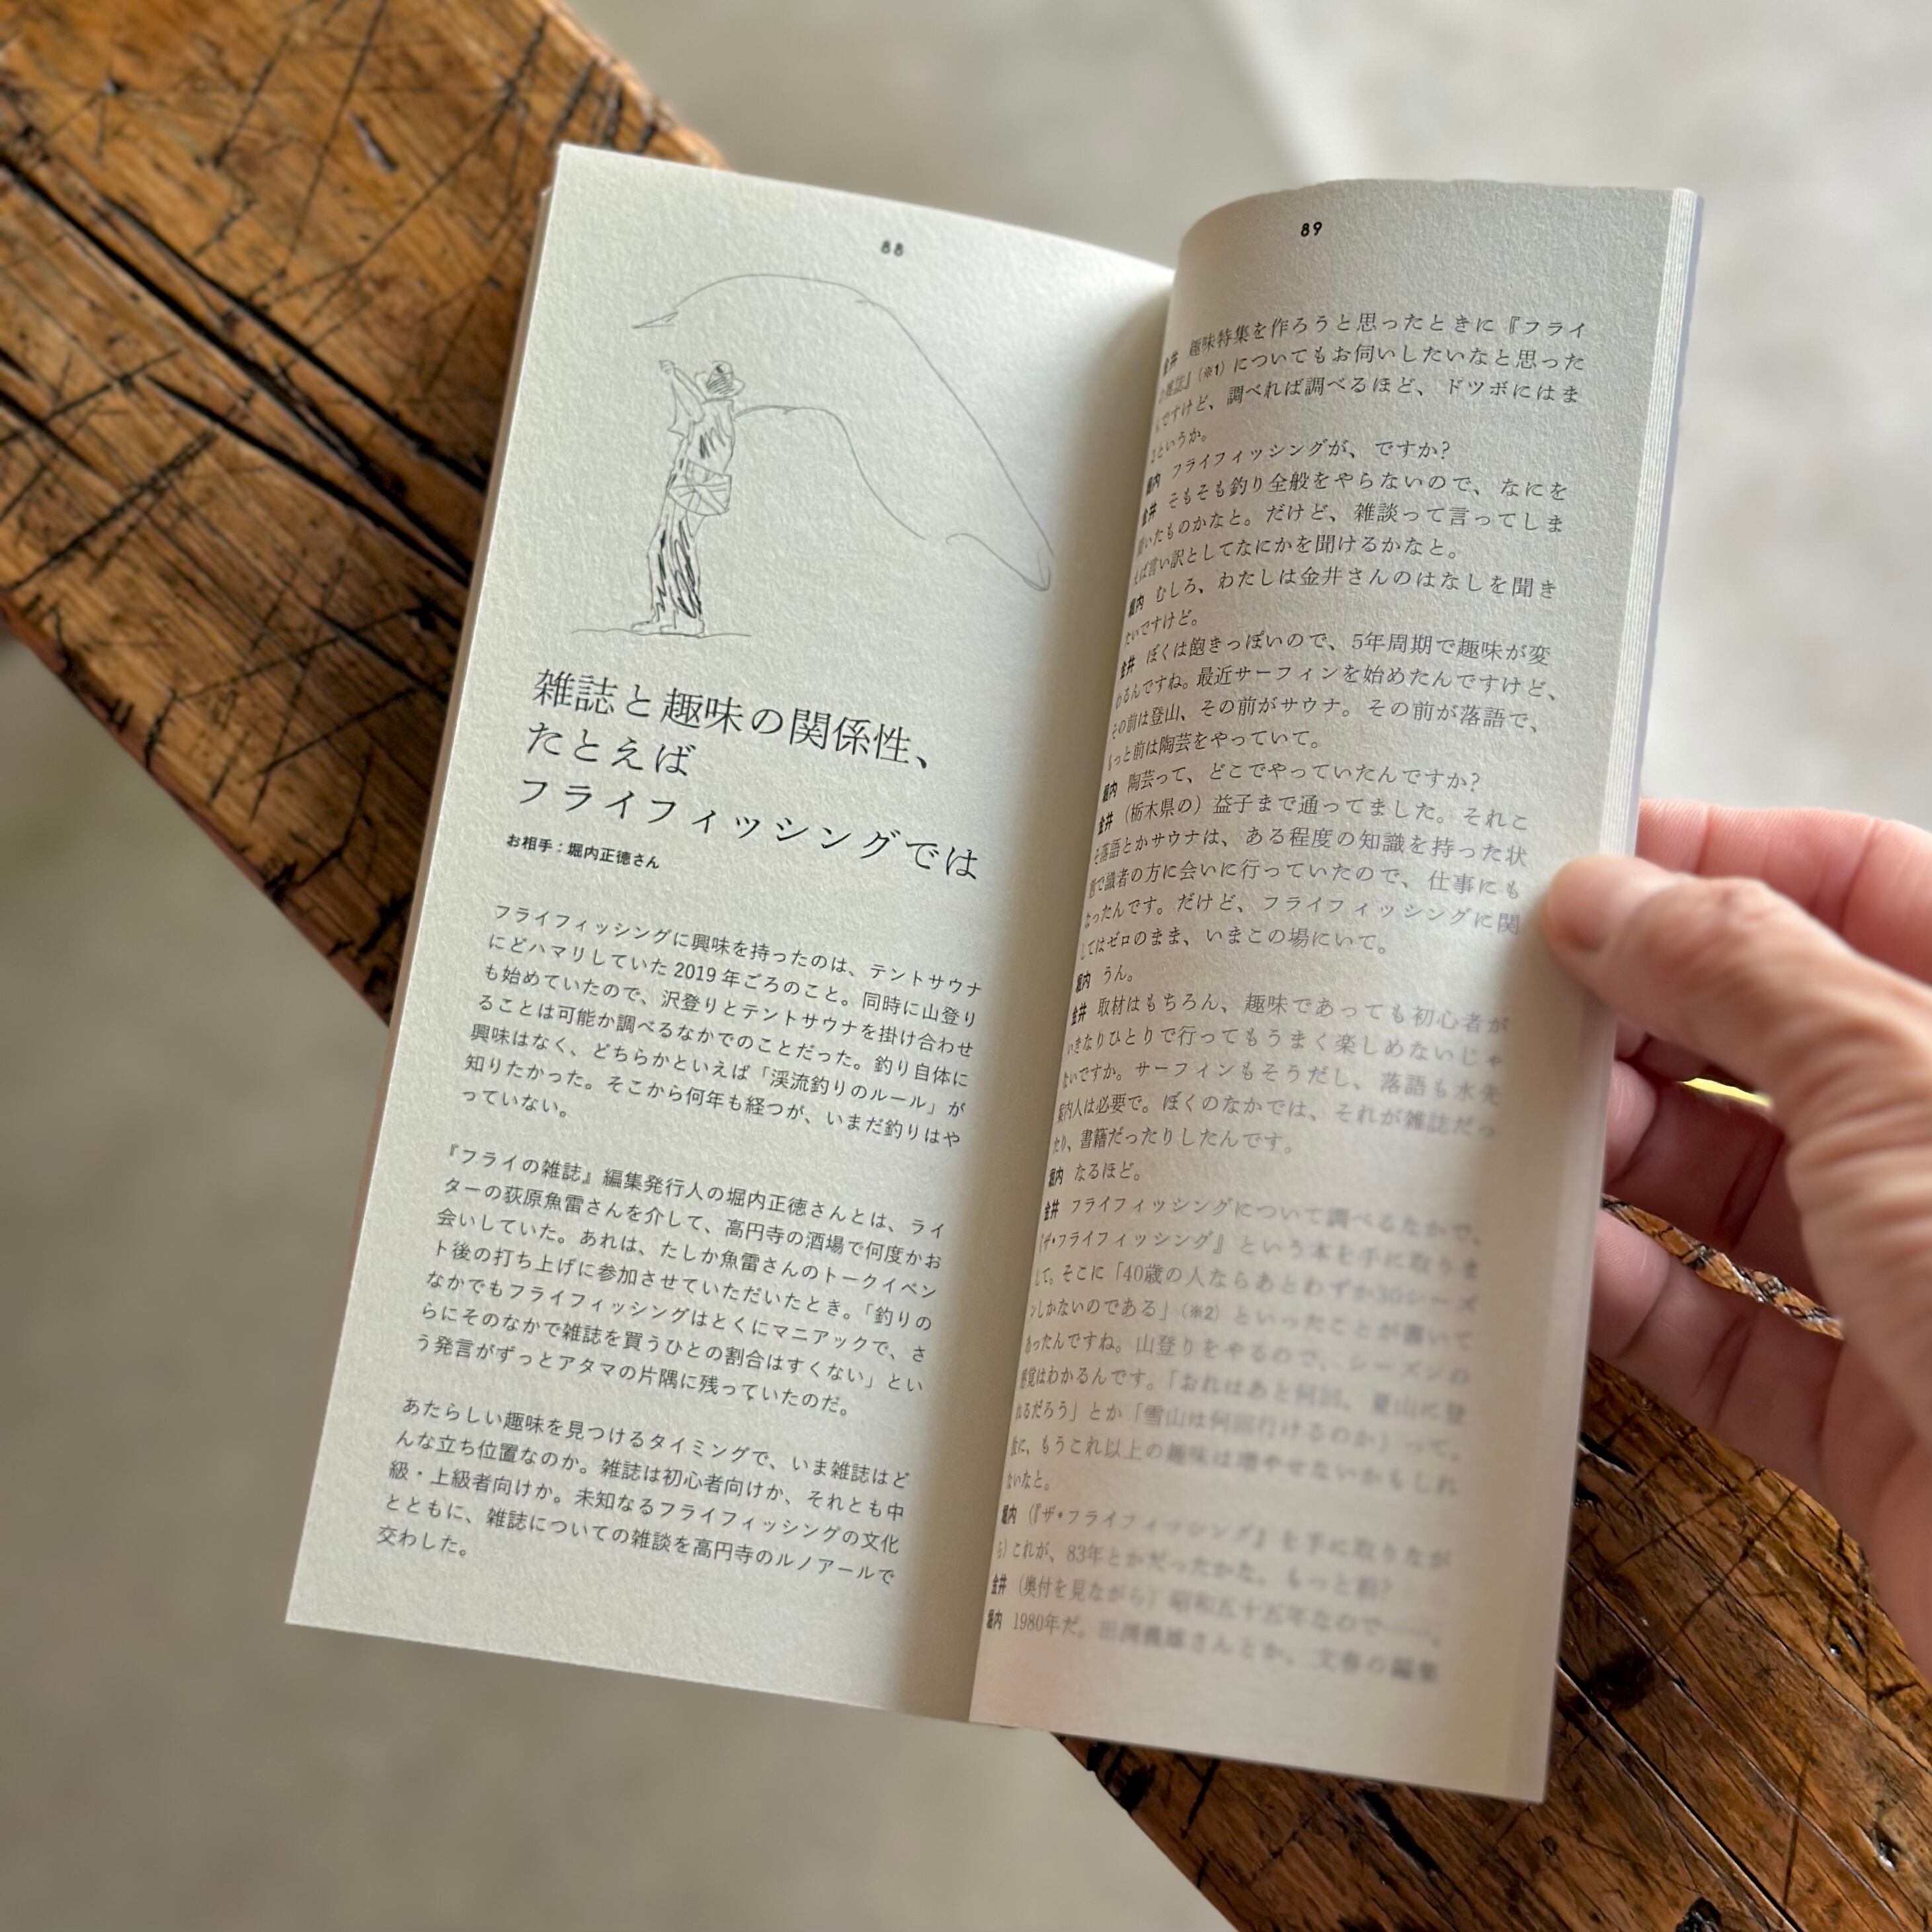 88
雑誌と趣味の関係性、
たとえば
フライフィッシングでは
お相手：堀内正徳さん
フライフィッシングに興味を持ったのは、テントサウナ
にどハマリしていた2019年ごろのこと。同時に山登り
も始めていたので、沢登りとテントサウナを掛け合わせ
ることは可能か調べるなかでのことだった。釣り自体に
興味はなく、どちらかといえば「渓流釣りのルール」が
知りたかった。そこから何年も経つが、いまだ釣りはや
っていない。
『フライの雑誌』編集発行人の堀内正徳さんとは、ライ
ターの荻原魚雷さんを介して、高円寺の酒場で何度かお
会いしていた。あれは、たしか魚雷さんのトークイベン
ト後の打ち上げに参加させていただいたとき。「釣りの
なかでもフライフィッシングはとくにマニアックで、さ
らにそのなかで雑誌を買うひとの割合はすくない」とい
う発言がずっとアタマの片隅に残っていたのだ。
あたらしい趣味を見つけるタイミングで、いま雑誌はど
んな立ち位置なのか。雑誌は初心者向けか、それとも中
級・上級者向けか。未知なるフライフィッシングの文化
とともに、雑誌についての雑談を高円寺のルノアールで
交わした。
89
金井 趣味特集を作ろうと思ったときに『フライ
の雑誌』（※1）についてもお伺いしたいなと思った
んですけど、調べれば調べるほど、ドツボにはま
るというか。
堀内 フライフィッシングが、ですか？
金井 そもそも釣り全般をやらないので、なにを
聞いたものかなと。だけど、雑談って言ってしま
えば言い訳としてなにかを聞けるかなと。
堀内 むしろ、わたしは金井さんのはなしを聞き
たいですけど。
金井 ぼくは飽きっぽいので、5年周期で趣味が変
わるんですね。最近サーフィンを始めたんですけど、
その前は登山、その前がサウナ。その前が落語で、
もっと前は陶芸をやっていて。
堀内 陶芸って、どこでやっていたんですか？
金井 （栃木県の）益子まで通ってました。それこ
そ落語とかサウナは、ある程度の知識を持った状
態で識者の方に会いに行っていたので、仕事にも
なったんです。だけど、フライフィッシングに関
してはゼロのまま、いまこの場にいて。
堀内 うん。
金井 取材はもちろん、趣味であっても初心者が
いきなりひとりで行ってもうまく楽しめないじゃ
ないですか。サーフィンもそうだし、落語も水先
案内人は必要で。ぼくのなかでは、それが雑誌だっ
たり、書籍だったりしたんです。
堀内 なるほど。
金井 フライフィッシングについて調べるなかで、
『ザ・フライフィッシング』という本を手に取りま
して。そこに「40歳の人ならあとわずか30シーズ
ンしかないのである」（※2）といったことが書いて
あったんですね。山登りをやるので、シーズンの
感覚はわかるんです。「おれはあと何回、夏山に登
れるだろう」とか「雪山は何回行けるのか」って、
に、もうこれ以上の趣味は増やせないかもしれ
ないなと。
堀内 （『ザ・フライフィッシング』を手に取りなが
ら）これが、83年とかだったかな。もっと前？
金井 （奥付を見ながら）昭和五十五年なので――。
堀内 1980年だ。さんとか、文春の編集